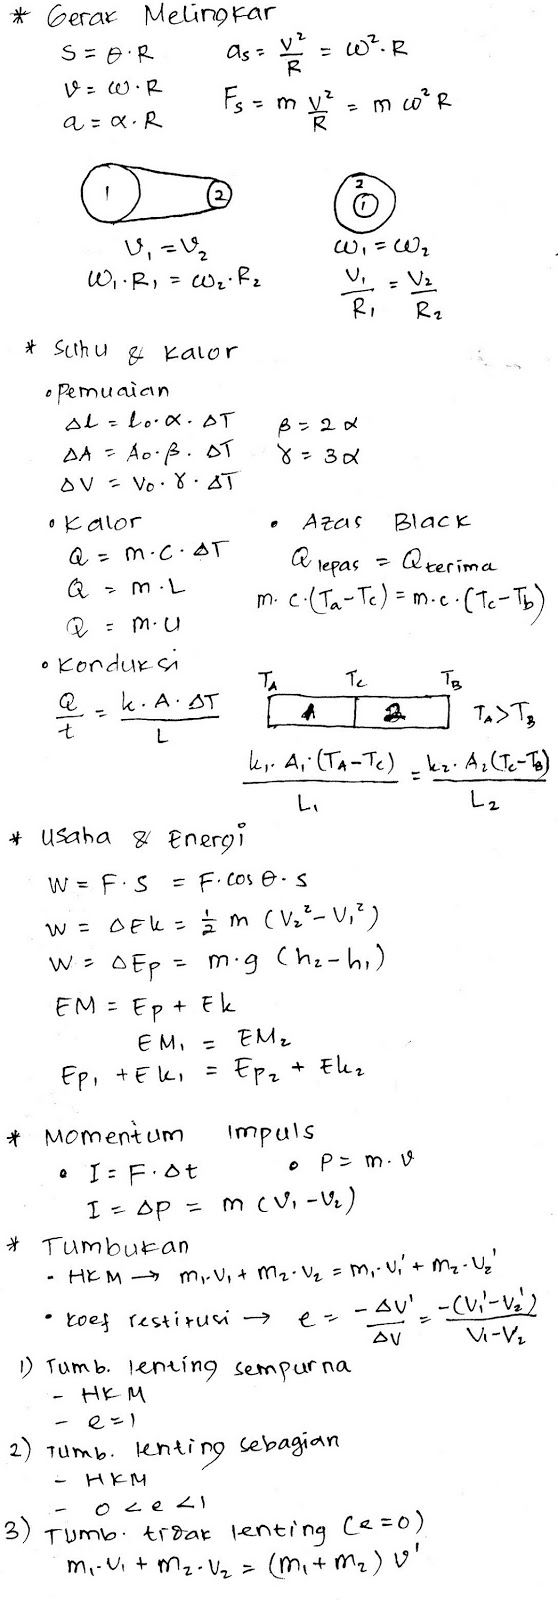 * Gerak Melingkar
S = θ·R
v = ω·R
a = α·R
as = v²/R = ω²·R
Fs = m v²/R = m ω² R
1 2
v₁ = v₂
ω₁·R₁ = ω₂·R₂
2
1
ω₁ = ω₂
V₁/R₁ = V₂/R₂
* Suhu & Kalor
• Pemuaian
ΔL = Lo·α·ΔT
ΔA = Ao·β·ΔT
ΔV = Vo·γ·ΔT
β = 2α
γ = 3α
• Kalor
Q = m·C·ΔT
Q = m·L
Q = m·U
• Azas Black
Q lepas = Q terima
m·c·(Ta-Tc) = m·c·(Tc-Tb)
• Konduksi
Q/t = k·A·ΔT/L
TA Tc TB
1 2 TA>TB
k₁·A₁·(TA-Tc)/L₁ = k₂·A₂(Tc-TB)/L₂
* Usaha & Energi
W = F·S = F·cos θ·s
W = ΔEk = ½ m (V₂²-V₁²)
W = ΔEp = m·g (h₂-h₁)
EM = Ep + Ek
EM₁ = EM₂
Ep₁ + Ek₁ = Ep₂ + Ek₂
* Momentum Impuls
• I = F·Δt • P = m·v
I = Δp = m (v₁-v₂)
* Tumbukan
- HKM → m₁·v₁ + m₂·v₂ = m₁·v₁' + m₂·v₂'
• koef restitusi → e = -Δv'/Δv = -(V₁'-V₂')/V₁-V₂
1) Tumb. lenting sempurna
- HKM
- e=1
2) Tumb. lenting sebagian
- HKM
- 0 < e < 1
3) Tumb. tidak lenting (e=0)
m₁·v₁ + m₂·v₂ = (m₁+m₂) v'